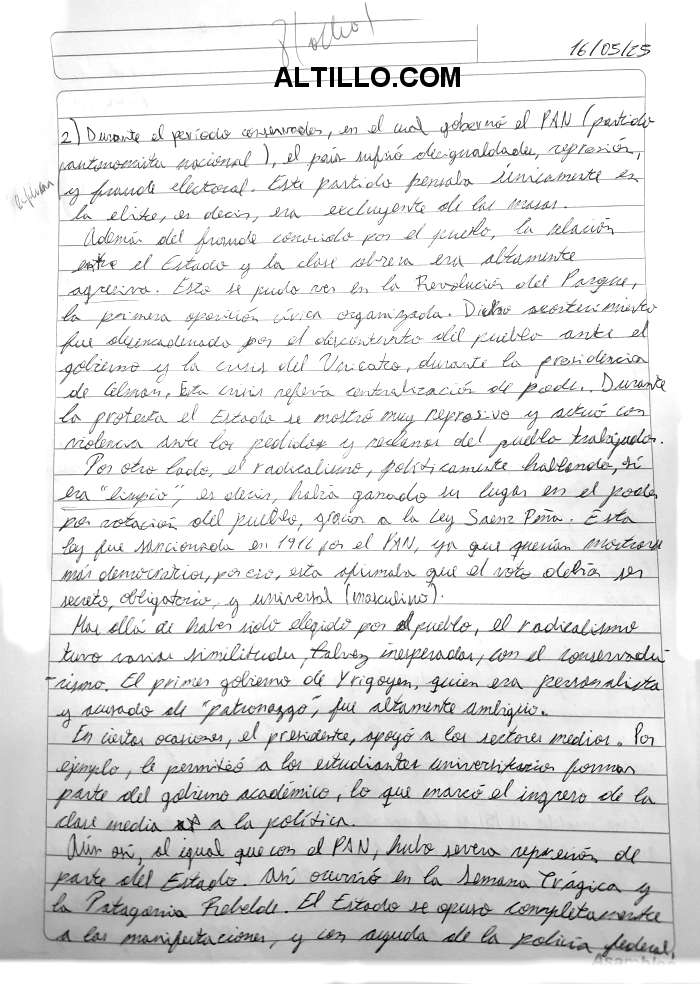 8 (ocho)
16/05/25
ALTILLO.COM
2) Durante el período conservador, en el cual gobernó el PAN (partido
autonomista nacional), el país sufrió desigualdades, represión,
y fraude electoral. Este partido pensaba únicamente en
la elite, es decir, era excluyente de las masas.
Además del fraude conocido por el pueblo, la relación
entre el Estado y la clase obrera era altamente
agresiva. Esto se pudo ver en la Revolución del Parque,
la primera oposición cívica organizada. Dicho acontecimiento
fue desencadenado por el descontento del pueblo ante el
gobierno y la crisis del Unicato, durante la presidencia
de Celman. Esta crisis refería centralización de poder. Durante
la protesta el Estado se mostró muy represivo y actuó con
violencia ante los pedidos y reclamos del pueblo trabajador.
Por otro lado, el radicalismo, políticamente hablando, sí
era "limpio", es decir, había ganado su lugar en el poder
por votación del pueblo, gracias a la Ley Saenz Peña. Esta
ley fue sancionada en 1912 por el PAN, ya que querían mostrarse
más democráticos, por eso, esta afirmaba que el voto debía ser
secreto, obligatorio, y universal (masculino).
Mas allá de haber sido elegido por el pueblo, el radicalismo
tuvo varias similitudes, talvez inesperadas, con el conservadu-
-rismo. El primer gobierno de Yrigoyen, quien era personalista
y acusado de "patronazgo", fue altamente ambiguo.
En ciertas ocasiones, el presidente, apoyó a los sectores medios. Por
ejemplo, le permitió a los estudiantes universitarios formar
parte del gobierno académico, lo que marcó el ingreso de la
clase media a la política.
Aún así, al igual que con el PAN, hubo severa represión de
parte del Estado. Así ocurrió en la Semana Trágica y
la Patagonia Rebelde. El Estado se opuso completamente
a las manifestaciones, y con ayuda de la policía federal,